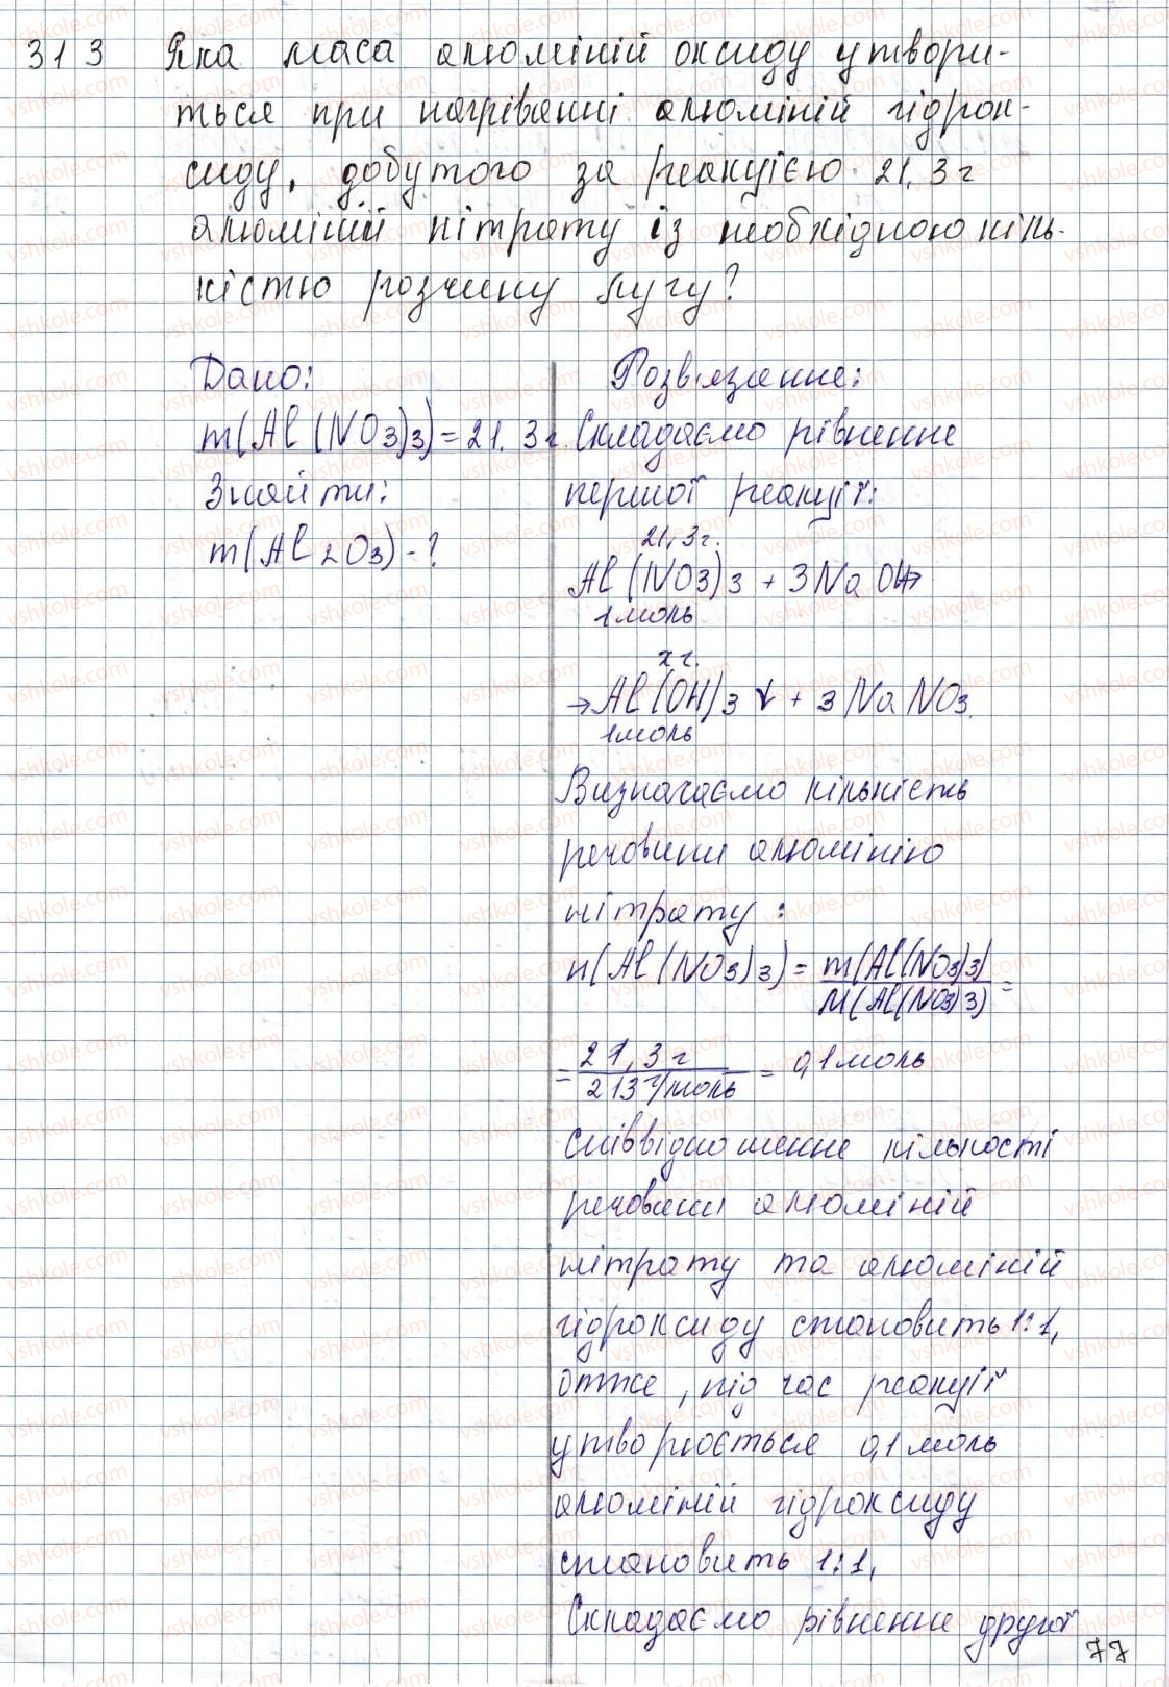 313 Яка маса алюміній оксиду утвори-
ться при нагріванні алюміній гідрок-
сиду, добутого за реакцією 21,3 г
алюміній нітрату із необхідною кіль-
кістю розчину лугу?
Дано:
m(Al(NO3)3)=21,3 г.
Знайти:
m(Al2O3)-?
Розв'язання:
Складаємо рівняння
першої реакції:
21,3 г.
Al(NO3)3 + 3NaOH→
1 моль
x г.
→Al(OH)3↓ + 3NaNO3.
1 моль
Визначаємо кількість
речовини алюмінію
нітрату:
n(Al(NO3)3) = m(Al(NO3)3) / M(Al(NO3)3) =
= 21,3 г / 213 г/моль = 0,1 моль
співвідношення кількості
речовини алюміній
нітрату та алюміній
гідроксиду становить 1:1,
отже, під час реакції
утворюється 0,1 моль
алюміній гідроксиду
становить 1:1,
Складаємо рівняння другої
77
vshkole.com